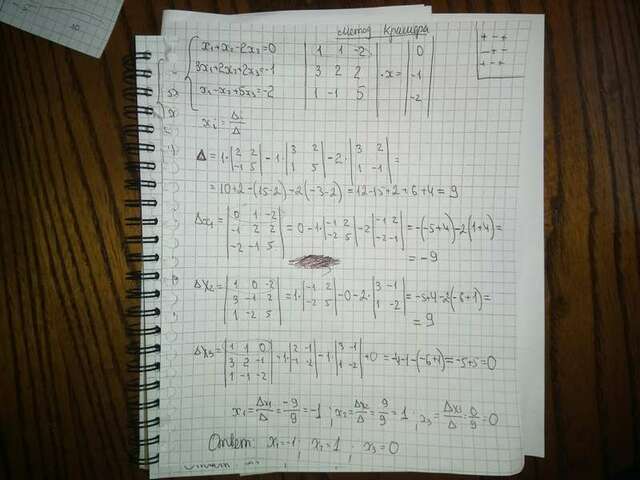 метод Крамера
x₁+x₂-2x₃=0
3x₁+2x₂+2x₃=-1
x₁-x₂+5x₃=-2
|1 1 -2; 3 2 2; 1 -1 5| · x = |0; -1; -2|
+ - +
- + -
+ - +
xᵢ = Δᵢ/Δ
Δ = 1·|2 2; -1 5| - 1·|3 2; 1 5| - 2·|3 2; 1 -1| =
= 10+2-(15-2)-2(-3-2) = 12-15+2+6+4 = 9
Δx₁ = |0 1 -2; -1 2 2; -2 -1 5| = 0-1·|-1 2; -2 5| -2·|-1 2; -2 -1| = -(-5+4)-2(1+4) =
= -9
Δx₂ = |1 0 -2; 3 -1 2; 1 -2 5| = 1·|-1 2; -2 5| -0-2·|3 -1; 1 -2| = -5+4-2(-6+1) =
= 9
Δx₃ = |1 1 0; 3 2 -1; 1 -1 -2| = 1·|2 -1; -1 -2| -1·|3 -1; 1 -2| +0 = -4-1-(-6+1) = -5+5=0
x₁ = Δx₁/Δ = -9/9 = -1 ; x₂ = Δx₂/Δ = 9/9 = 1 ; x₃ = Δx₃/Δ = 0/9 = 0
Ответ: x₁=-1 ; x₂=1 ; x₃=0